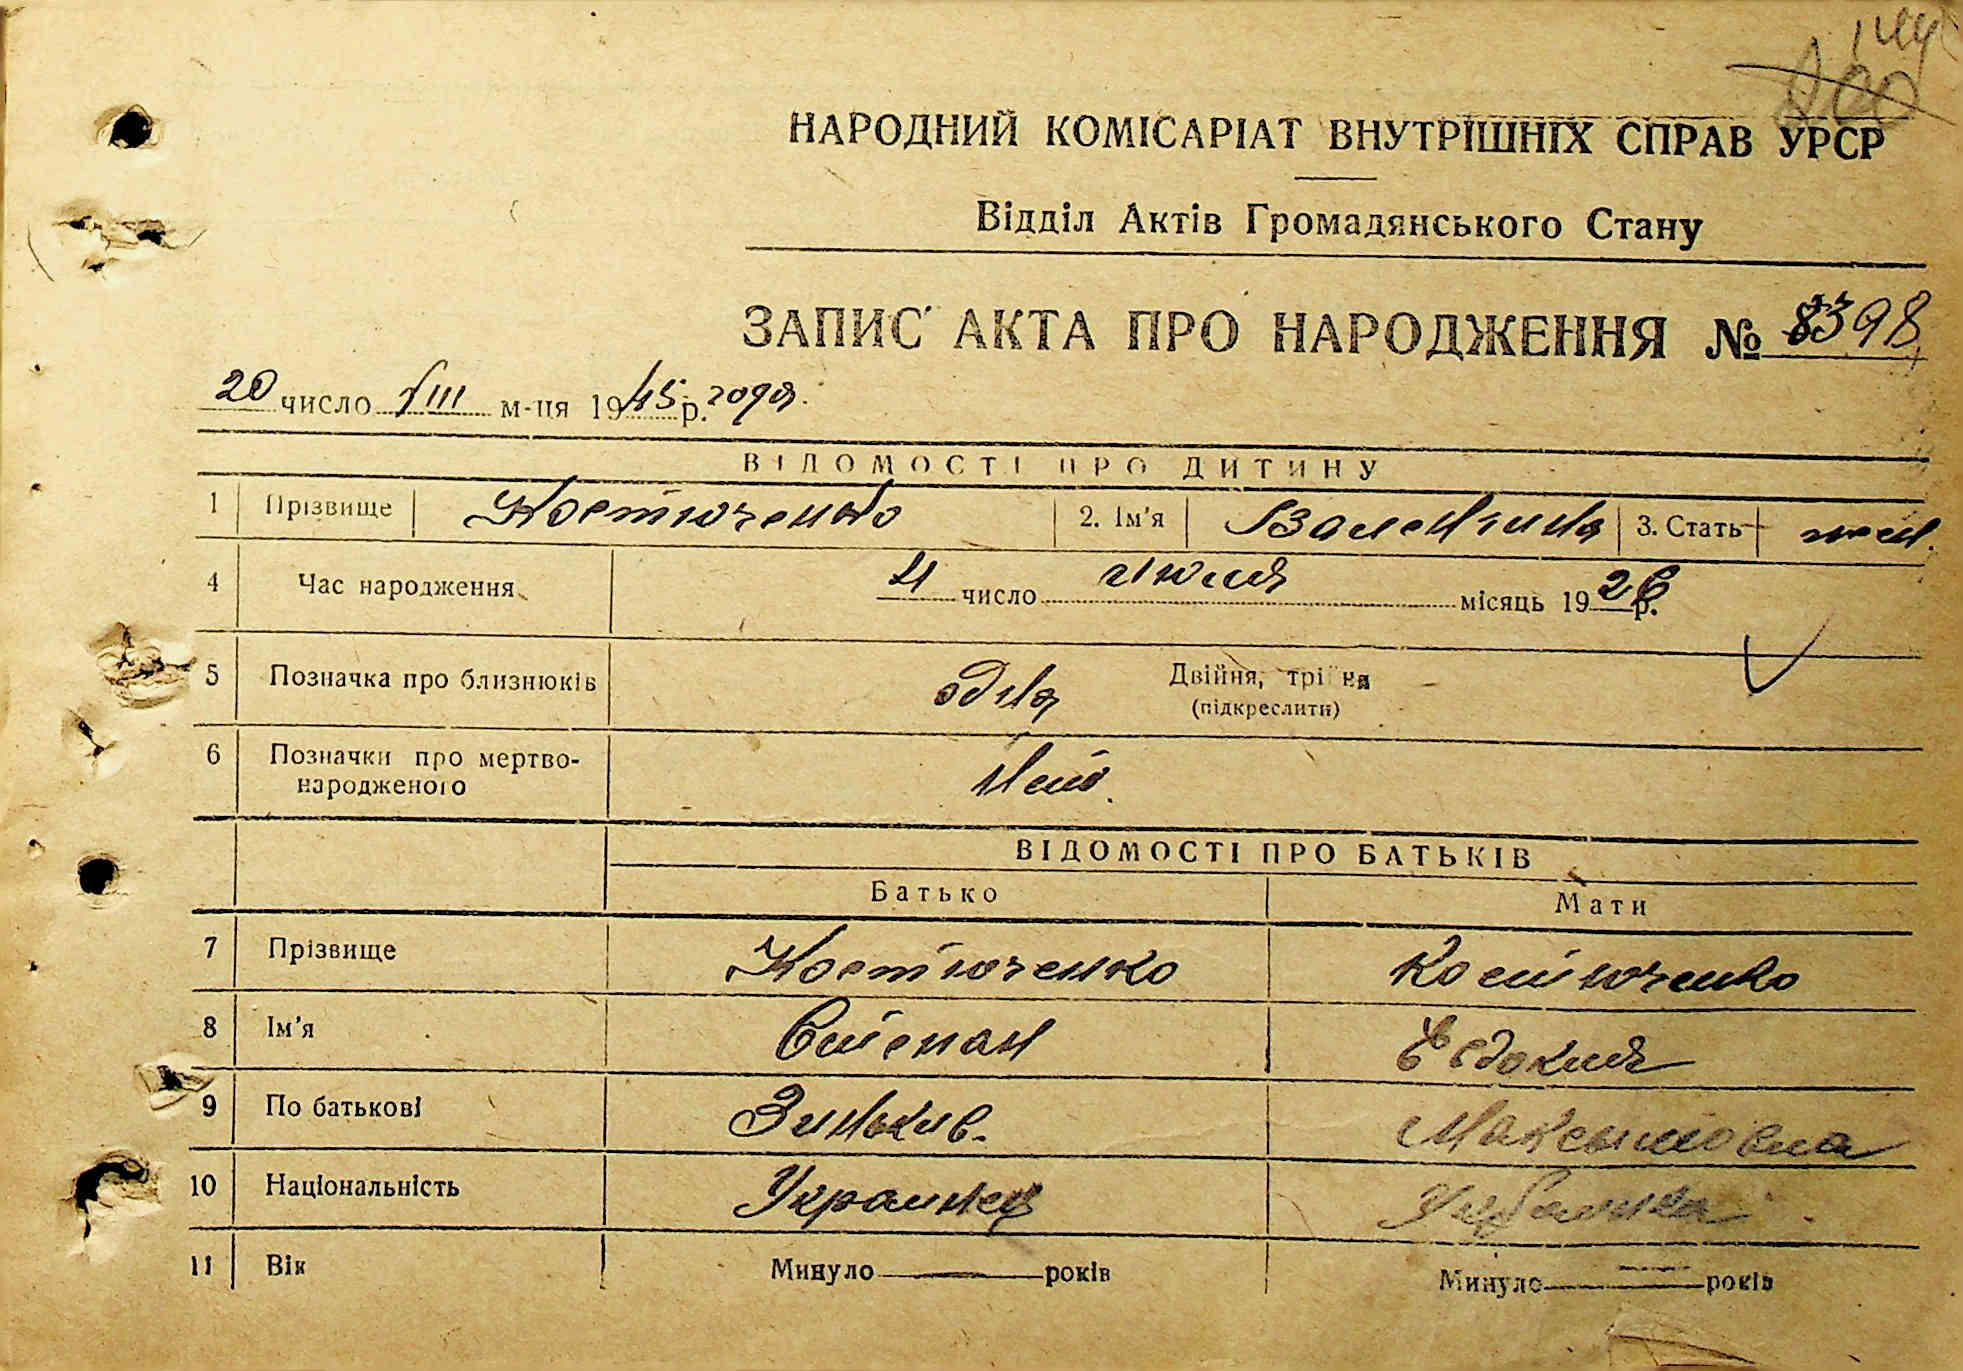 144
200
НАРОДНИЙ КОМІСАРІАТ ВНУТРІШНІХ СПРАВ УРСР
Відділ Актів Громадянського Стану
ЗАПИС АКТА ПРО НАРОДЖЕННЯ № 8398
20 число VIII м-ця 1945 р. года.
ВІДОМОСТІ ПРО ДИТИНУ
1 Прізвище Костюченко 2. Ім'я Валентина 3. Стать жен.
4 Час народження 4 число июля місяць 1926 р.
5 Позначка про близнюків одна Двійня, трійня
(підкреслити)
6 Позначки про мертво-
народженого Нет.
ВІДОМОСТІ ПРО БАТЬКІВ
Батько Мати
7 Прізвище Костюченко Костюченко
8 Ім'я Степан Евдокия
9 По батькові Зиньков. Максимовна
10 Національність Украинец Украинка
11 Вік Минуло — років Минуло — років